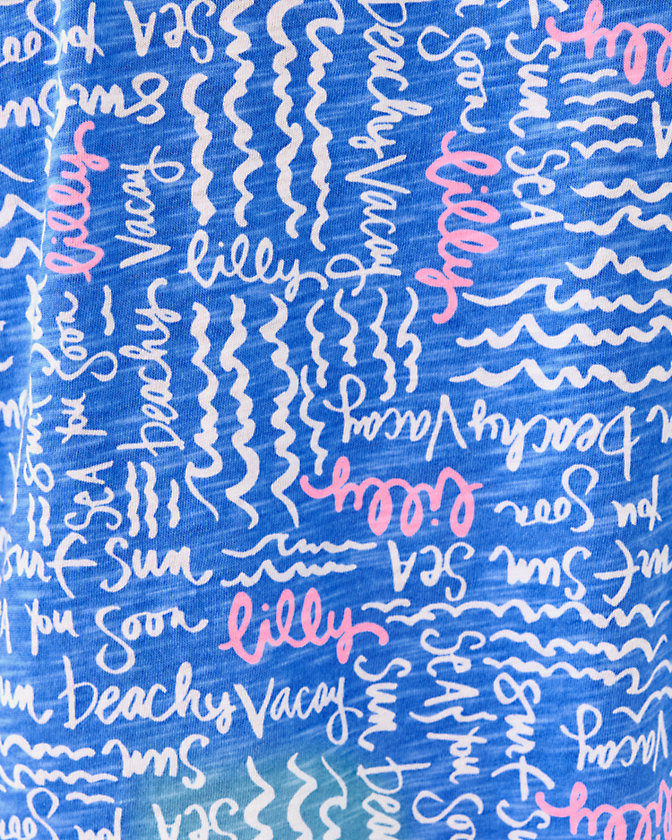 SEA
You
Soon
Surf
Sun
lilly
Vacay
Beachy Vacay
Soon
lilly
Sun
SEA
lilly
lilly
Soon
You
SEA
Surf
Beachy
Beachy Vacay
lilly
You
Soon
Surf Sun
SEA
Surf Sun
You Soon
lilly
Sun Beachy Vacay
SEA
You
Surf
Sun
Beachy
Vacay
Sun
SEA
Soon
lilly